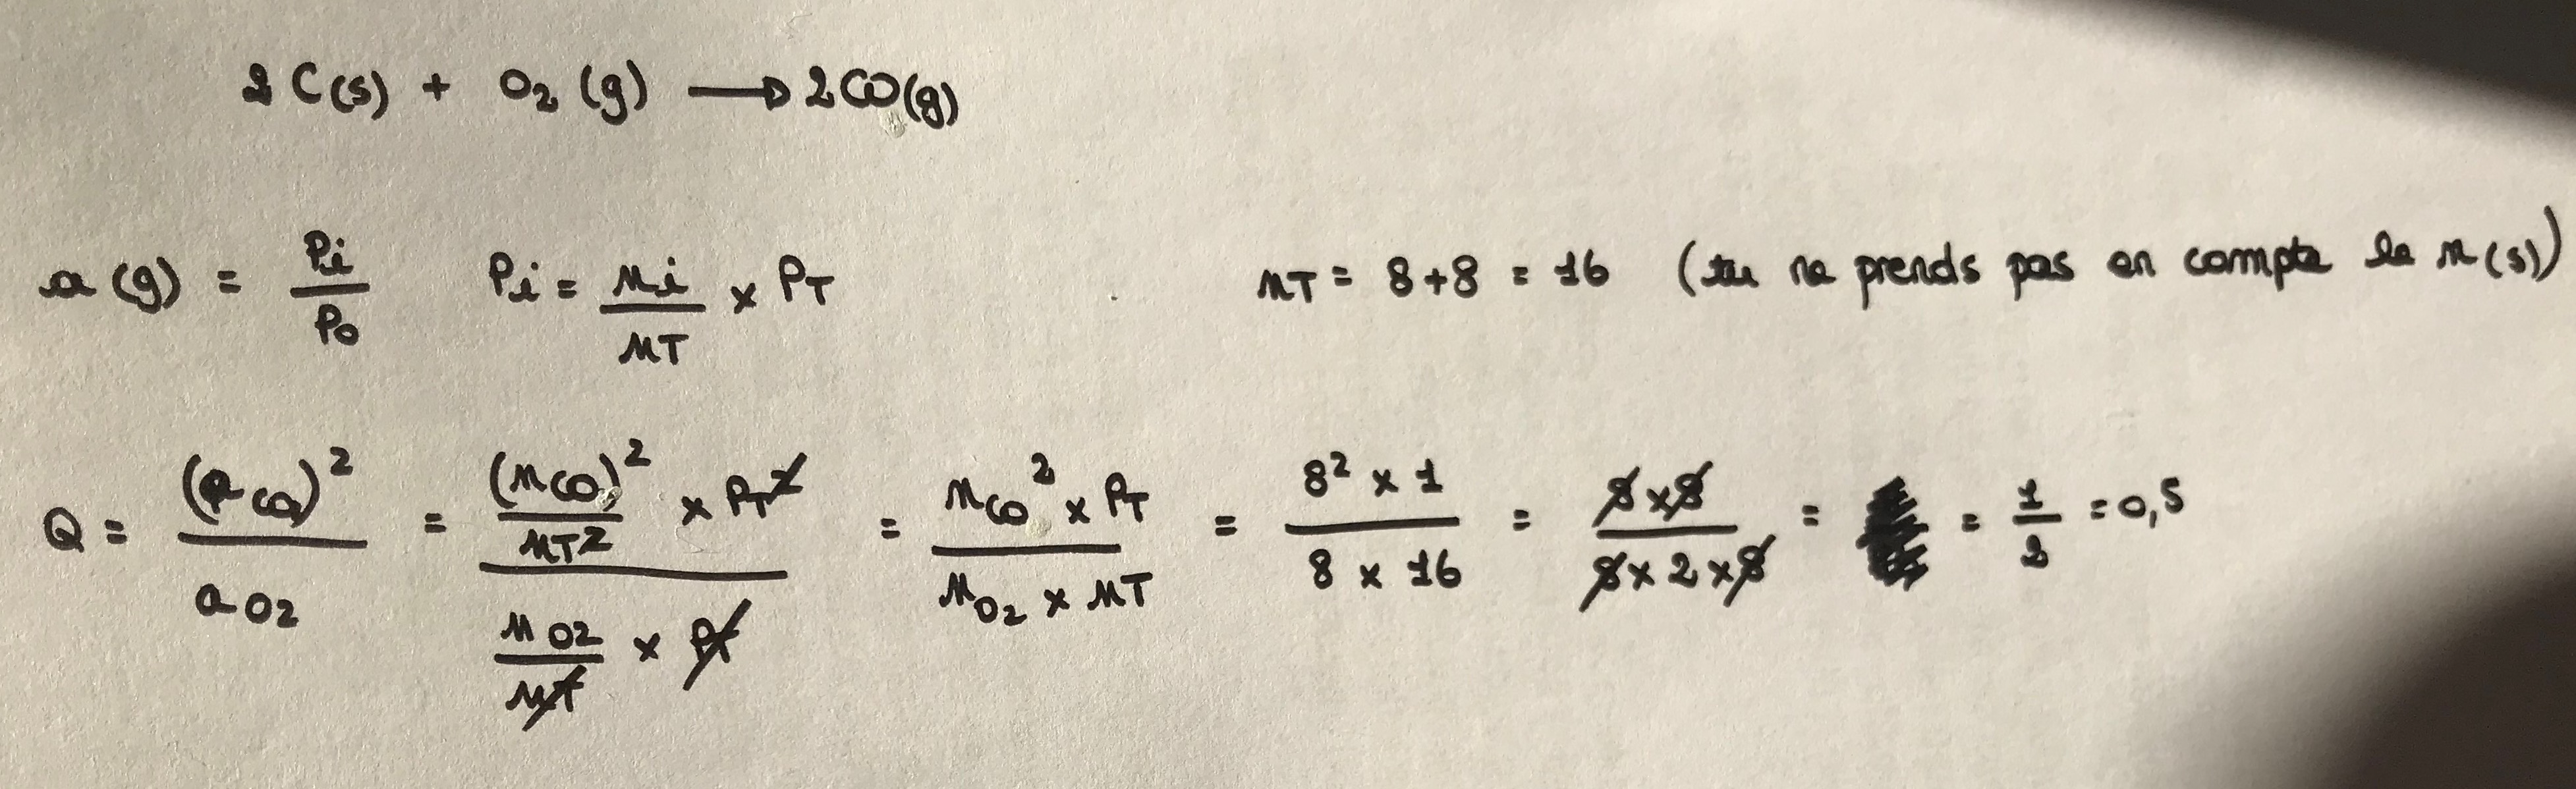 2 C(s) + O2 (g) → 2CO(g)
a (g) = Pi/P0 Pi = ni/nT × PT nT = 8+8 = 16 (tu ne prends pas en compte le n(s))
Q = (aCO)²/aO2 = ((nCO)²/nT² × PT²)/(nO2/nT × PT) = (nCO² × PT)/(nO2 × nT) = (8² × 1)/(8 × 16) = (8×8)/(8×2×8) = = 1/2 = 0,5